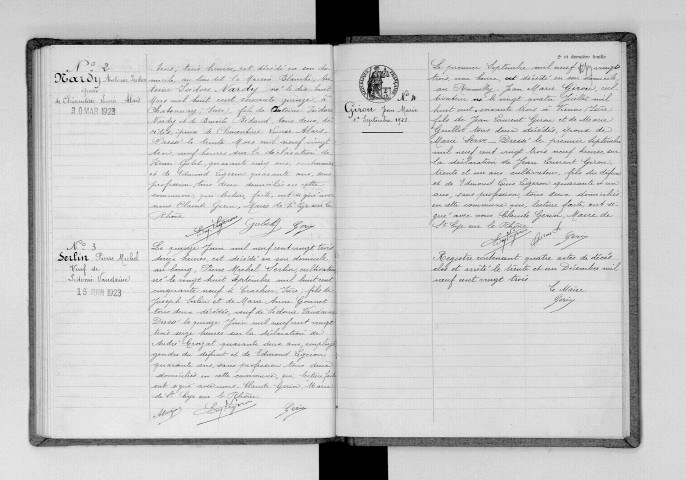 N° 2
Nardy Antoine Isidore
époux
de Clémentine Louise Alart
30 MAR 1923
trois, trois heures, est décédé en son do-
micile au lieu dit la Maison Blanche, An-
toine Isidore Nardy né le dix huit
Mars mil huit cent soixante quinze à
fils de Antoine Isidore
Nardy et de Benoite tous deux dé-
cédés, époux de Clémentine Louise Alart.
Dressé le trente Mars mil neuf cent vingt
trois, neuf heures sur la déclaration de
quarante ans,
et de Edmond Ligeron quarante ans, sans
profession, tous deux domiciliés en cette
commune qui, lecture faite, ont signé avec
nous Claude Gerin, Maire de St Cyr sur le
Rhône
Ligeron Gerin
N° 3
Serlin Pierre Michel
Veuf de
Sidonie Vaudaine
15 JUIN 1923
Le quinze Juin mil neuf cent vingt trois
heures, est décédé en son domicile
au bourg, Pierre Michel Serlin, cultivateur
né le vingt huit Septembre mil huit cent
cinquante neuf à fils de
Joseph Serlin et de Marie Anne Gonnet
tous deux décédés, veuf de Sidonie Vaudaine
Dressé le quinze Juin mil neuf cent vingt
trois seize heures sur la déclaration de
André Crozat quarante deux ans, employé
gendre du défunt et de Edmond Ligeron
quarante ans, sans profession tous deux
domiciliés en cette commune, qui lecture faite
ont signé avec nous, Claude Gerin, Maire
de St Cyr sur le Rhône.
Ligeron Gerin
2e et dernière feuille
N° 4
Giroux Jean Marie
1er Septembre 1923
Le premier Septembre mil neuf cent vingt
trois une heure, est décédé en son domicile
au Jean Marie cul-
tivateur né le vingt quatre Juillet mil
huit cent soixante trois à
fils de Jean Laurent et de Marie
Guillot tous deux décédés, époux de
Marie Dressé le premier Septembre
mil neuf cent vingt trois neuf heures sur
la déclaration de Jean Laurent
trente et un ans cultivateur, fils du défunt
et de Edmond Louis Ligeron quarante et un
ans, sans profession tous deux domiciliés
en cette commune qui, lecture faite ont si-
gné avec nous Claude Gerin, Maire de
St Cyr sur le Rhône.
Ligeron Gerin
Registre contenant quatre actes de décès
clos et arrêté le trente et un Décembre mil
neuf cent vingt trois
Le Maire
Gerin